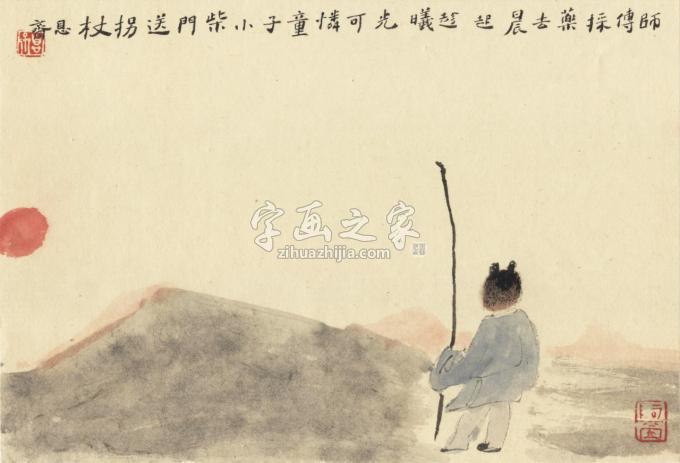 師傅採藥去晨起趁曦光可憐童子小柴門送拐杖息齋
字画之家
zihuazhijia.com